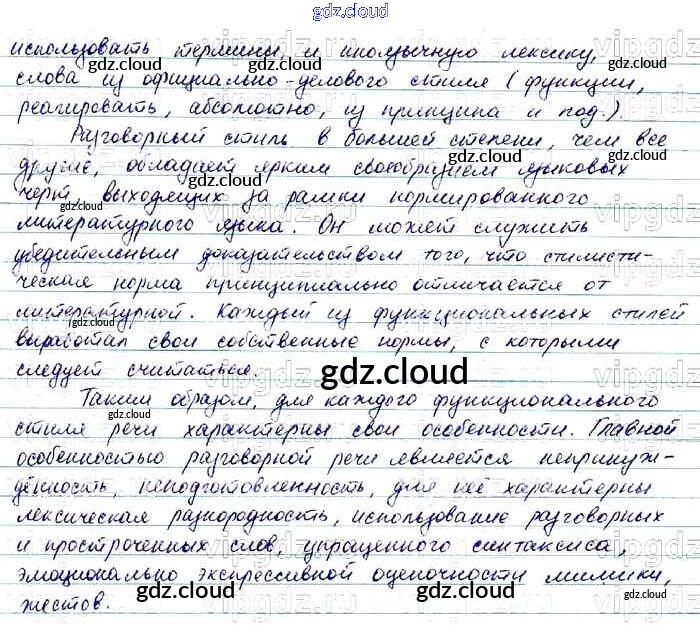 gdz.cloud
использовать термины и иноязычную лексику,
слова из официально-делового стиля (функции,
реагировать, абсолютно, из принципа и под.).
Разговорный стиль в большей степени, чем все
другие, обладает ярким своеобразием языковых
черт, выходящих за рамки нормированного
литературного языка. Он может служить
убедительным доказательством того, что стилисти-
ческая норма принципиально отличается от
литературной. Каждый из функциональных стилей
выработал свои собственные нормы, с которыми
следует считаться.
gdz.cloud
Таким образом, для каждого функционального
стиля речи характерны свои особенности. Главной
особенностью разговорной речи является неприкуж-
дённость, неподготовленность, для неё характерны
лексическая разнородность, использование разговорных
и простроченных слов, упрощенного синтаксиса,
эмоционально экспрессивной оценочности мимики,
жестов.